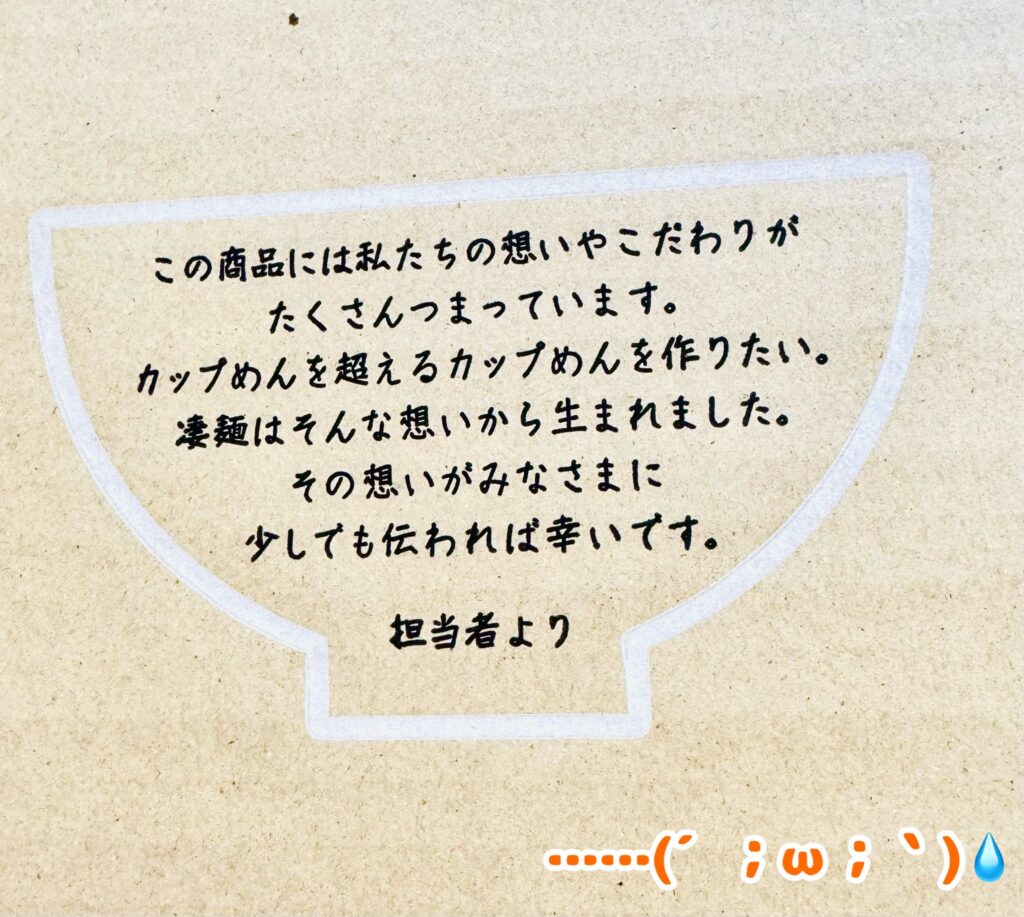 この商品には私たちの想いやこだわりが
たくさんつまっています。
カップめんを超えるカップめんを作りたい。
凄麺はそんな想いから生まれました。
その想いがみなさまに
少しでも伝われば幸いです。
担当者より
……(´；ω；｀)💧